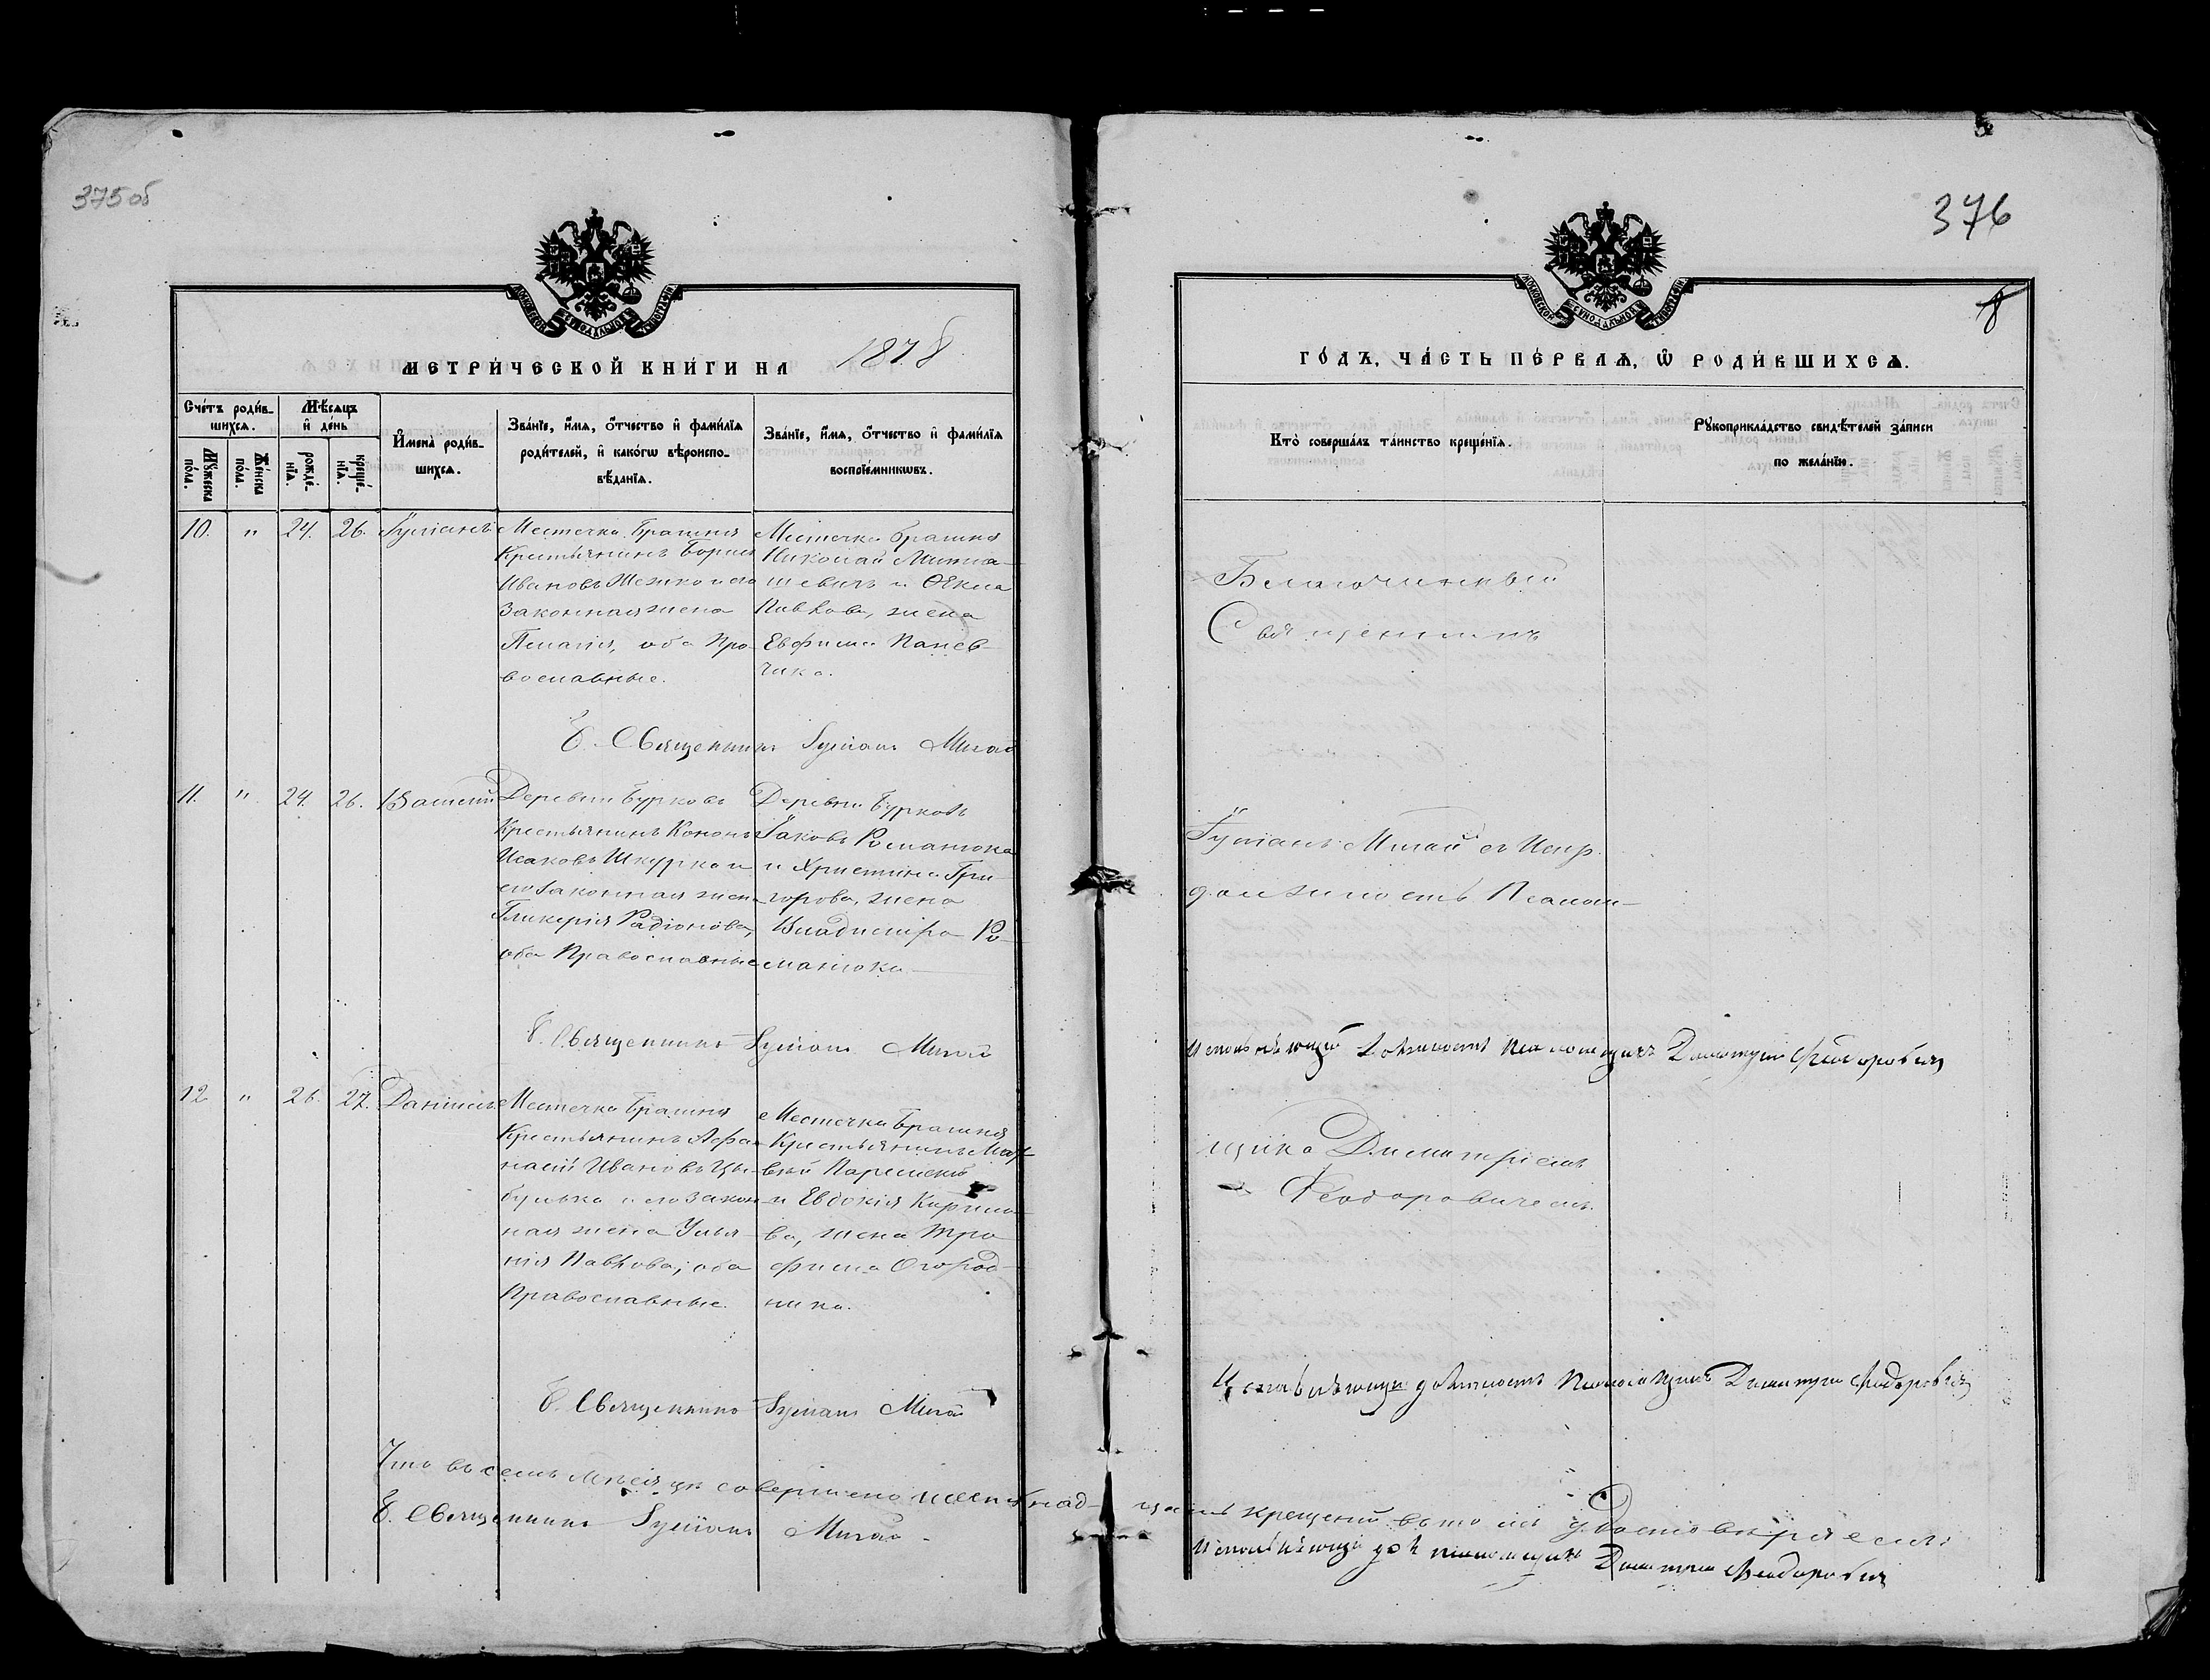 375 об
МОСКОВСКОЙ СѴНОДАЛЬНОЙ ТИПОГРАФІИ
МЕТРИ́ЧЕСКОЙ КНИ́ГИ НА 1878
Сче́тъ роди́в-
шихсѧ.
Мꙋ́жеска
пола.
Же́нска
по́ла.
Мѣ́сѧцъ
и҆ де́нь
рожде́-
нїѧ.
креще́-
нїѧ.
И҆мена̀ роди́в-
шихсѧ.
Зва́нїе, и҆́мѧ, ѻ҆́тчество и҆ фами́лїѧ
роди́телей, и҆ како́гѡ вѣроиспо-
вѣ́данїѧ.
Зва́нїе, и҆́мѧ, ѻ҆́тчество и҆ фами́лїѧ
воспрїе́мникѡвъ.
10. " 24. 26. Іуліанъ
Местечка Брагиня
Крестьянинъ Борисъ
Ивановъ
законная жена
Пелагія, оба Пра-
вославные.
Местечка Брагиня
Николай
и Ѳекла
Павлова, жена
Евфима
чика.
Б. Священникъ Іуліанъ Мигай
11. " 24. 26. Василій
Деревни Бурковъ
Крестьянинъ Кононъ
Исаковъ Шкурко и
его законная жена
Гликерія Радіонова,
оба Православные
Деревни Бурковъ
Іаковъ Романюка
и Христина Гри-
горова, жена
Владиміра Ро-
манюка
Б. Священникъ Іуліанъ Мигай
12 " 26. 27. Даніилъ
Местечка Брагиня
Крестьянинъ Афа-
насій Ивановъ Цы-
булька и его закон-
ная жена Улья-
нія Павлова, оба
Православные.
Местечка Брагиня
Крестьянинъ Мат-
вѣй
и Евдокія Кирило-
ва, жена Тро-
фима Огород-
ника.
Б. Священникъ Іуліанъ Мигай
Что въ семъ мѣсяцѣ совершено
Б. Священникъ Іуліанъ Мигай
376
8
МОСКОВСКОЙ СѴНОДАЛЬНОЙ ТИПОГРАФІИ
ГО́ДЪ, ЧА́СТЬ ПЕ́РВАѦ, Ѡ҆ РОДИ́ВШИХСѦ.
Кто̀ соверша́лъ та́инство креще́нїѧ.
Рꙋкоприкла́дство свидѣ́телей за́писи
по жела́нїю.
Благочинный
Священникъ
Іуліанъ Мигай съ Испр.
должность Псалом-
Исполняющій должность Псаломщика Димитрій Феодоровичъ
щика Димитріемъ
Феодоровичемъ.
Исполняющій должность Псаломщика Димитрій Феодоровичъ
крещеній въ томъ удостовѣряемъ:
Исполняющій дол псаломщика Димитрій Феодоровичъ